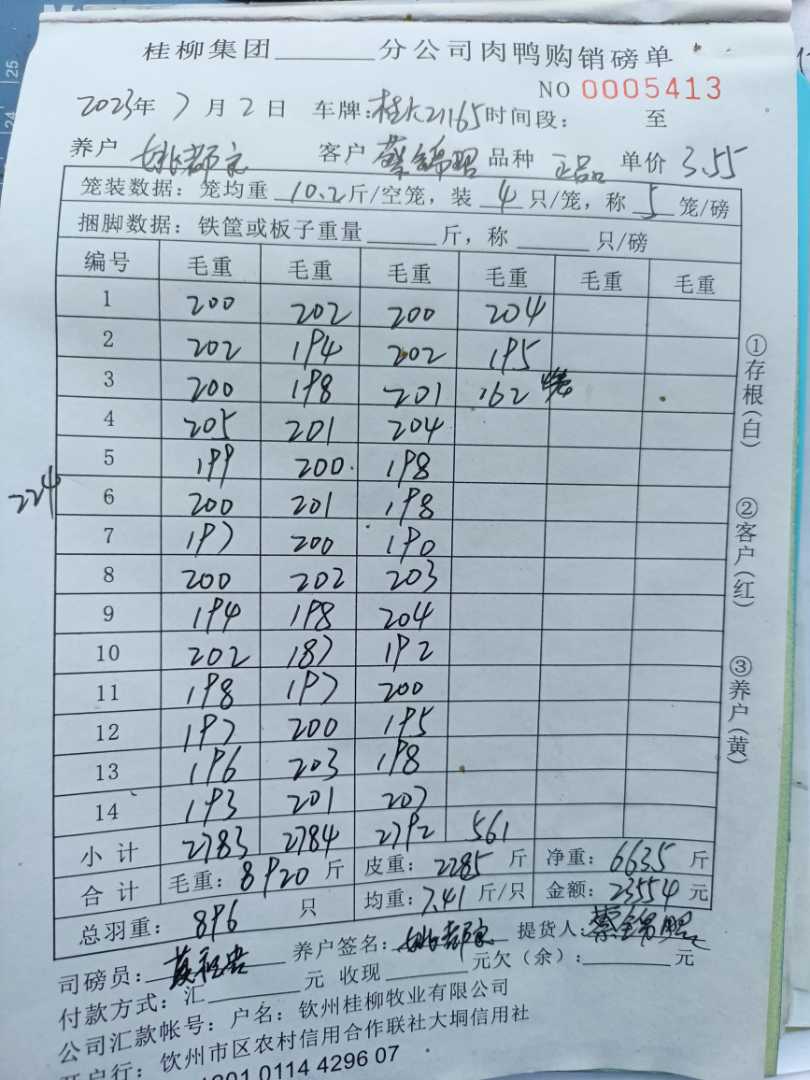 桂柳集团______分公司肉鸭购销磅单
NO 0005413
2023年7月2日 车牌:桂 21165 时间段: 至
养户 姚都 客户 蔡锦 品种 正品 单价 3.55
笼装数据: 笼均重 10.2 斤/空笼, 装 4 只/笼, 称 5 笼/磅
捆脚数据: 铁筐或板子重量______斤, 称______只/磅
编号 毛重 毛重 毛重 毛重 毛重 毛重
1 200 202 200 204
2 202 194 202 195
3 200 198 201 162
4 205 201 204
5 199 200 198
6 200 201 198
7 197 200 190
8 200 202 203
9 194 198 204
10 202 187 192
11 198 197 200
12 197 200 195
13 196 203 198
14 193 201 207
小计 2783 2784 2792 561
合计 毛重: 8920 斤 皮重: 2285 斤 净重: 6635 斤
总羽重: 896 只 均重: 7.41 斤/只 金额: 23554 元
司磅员: 养户签名: 姚都 提货人: 蔡锦
付款方式: 汇______元 收现______元欠(余):______元
公司汇款帐号: 户名: 钦州桂柳牧业有限公司
开户行: 钦州市区农村信用合作联社大垌信用社
0114 4296 07
224
①存根(白)
②客户(红)
③养户(黄)
25
24